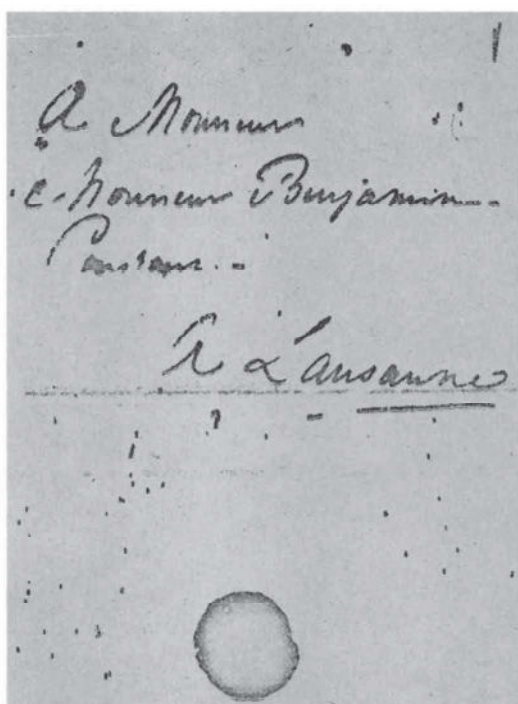 A Monsieur
Monsieur Benjamin
Constant.
A Lausanne